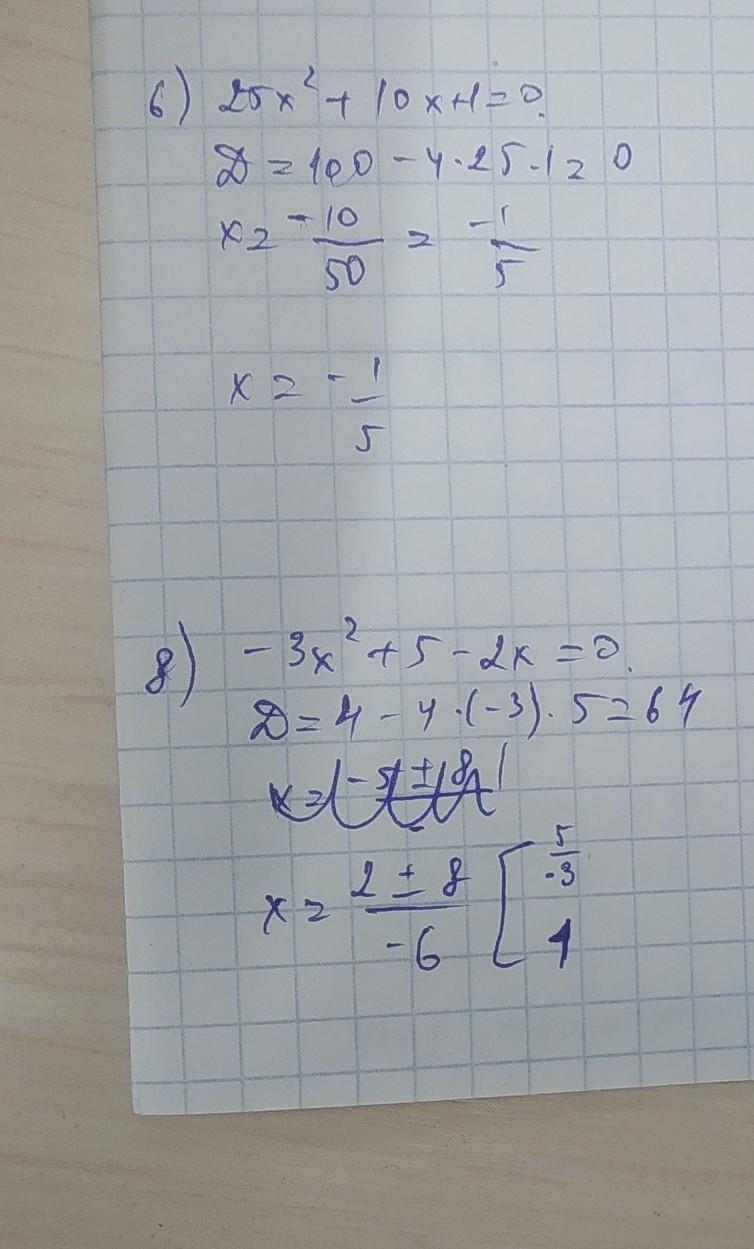 6) 25x² + 10x+1=0.
D = 100 - 4·25·1 = 0
x = -10/50 = -1/5
x = -1/5
8) -3x² + 5 - 2x = 0.
D = 4 - 4·(-3)·5 = 64
x = (2 ± 8)/-6 [ 5/-3
1